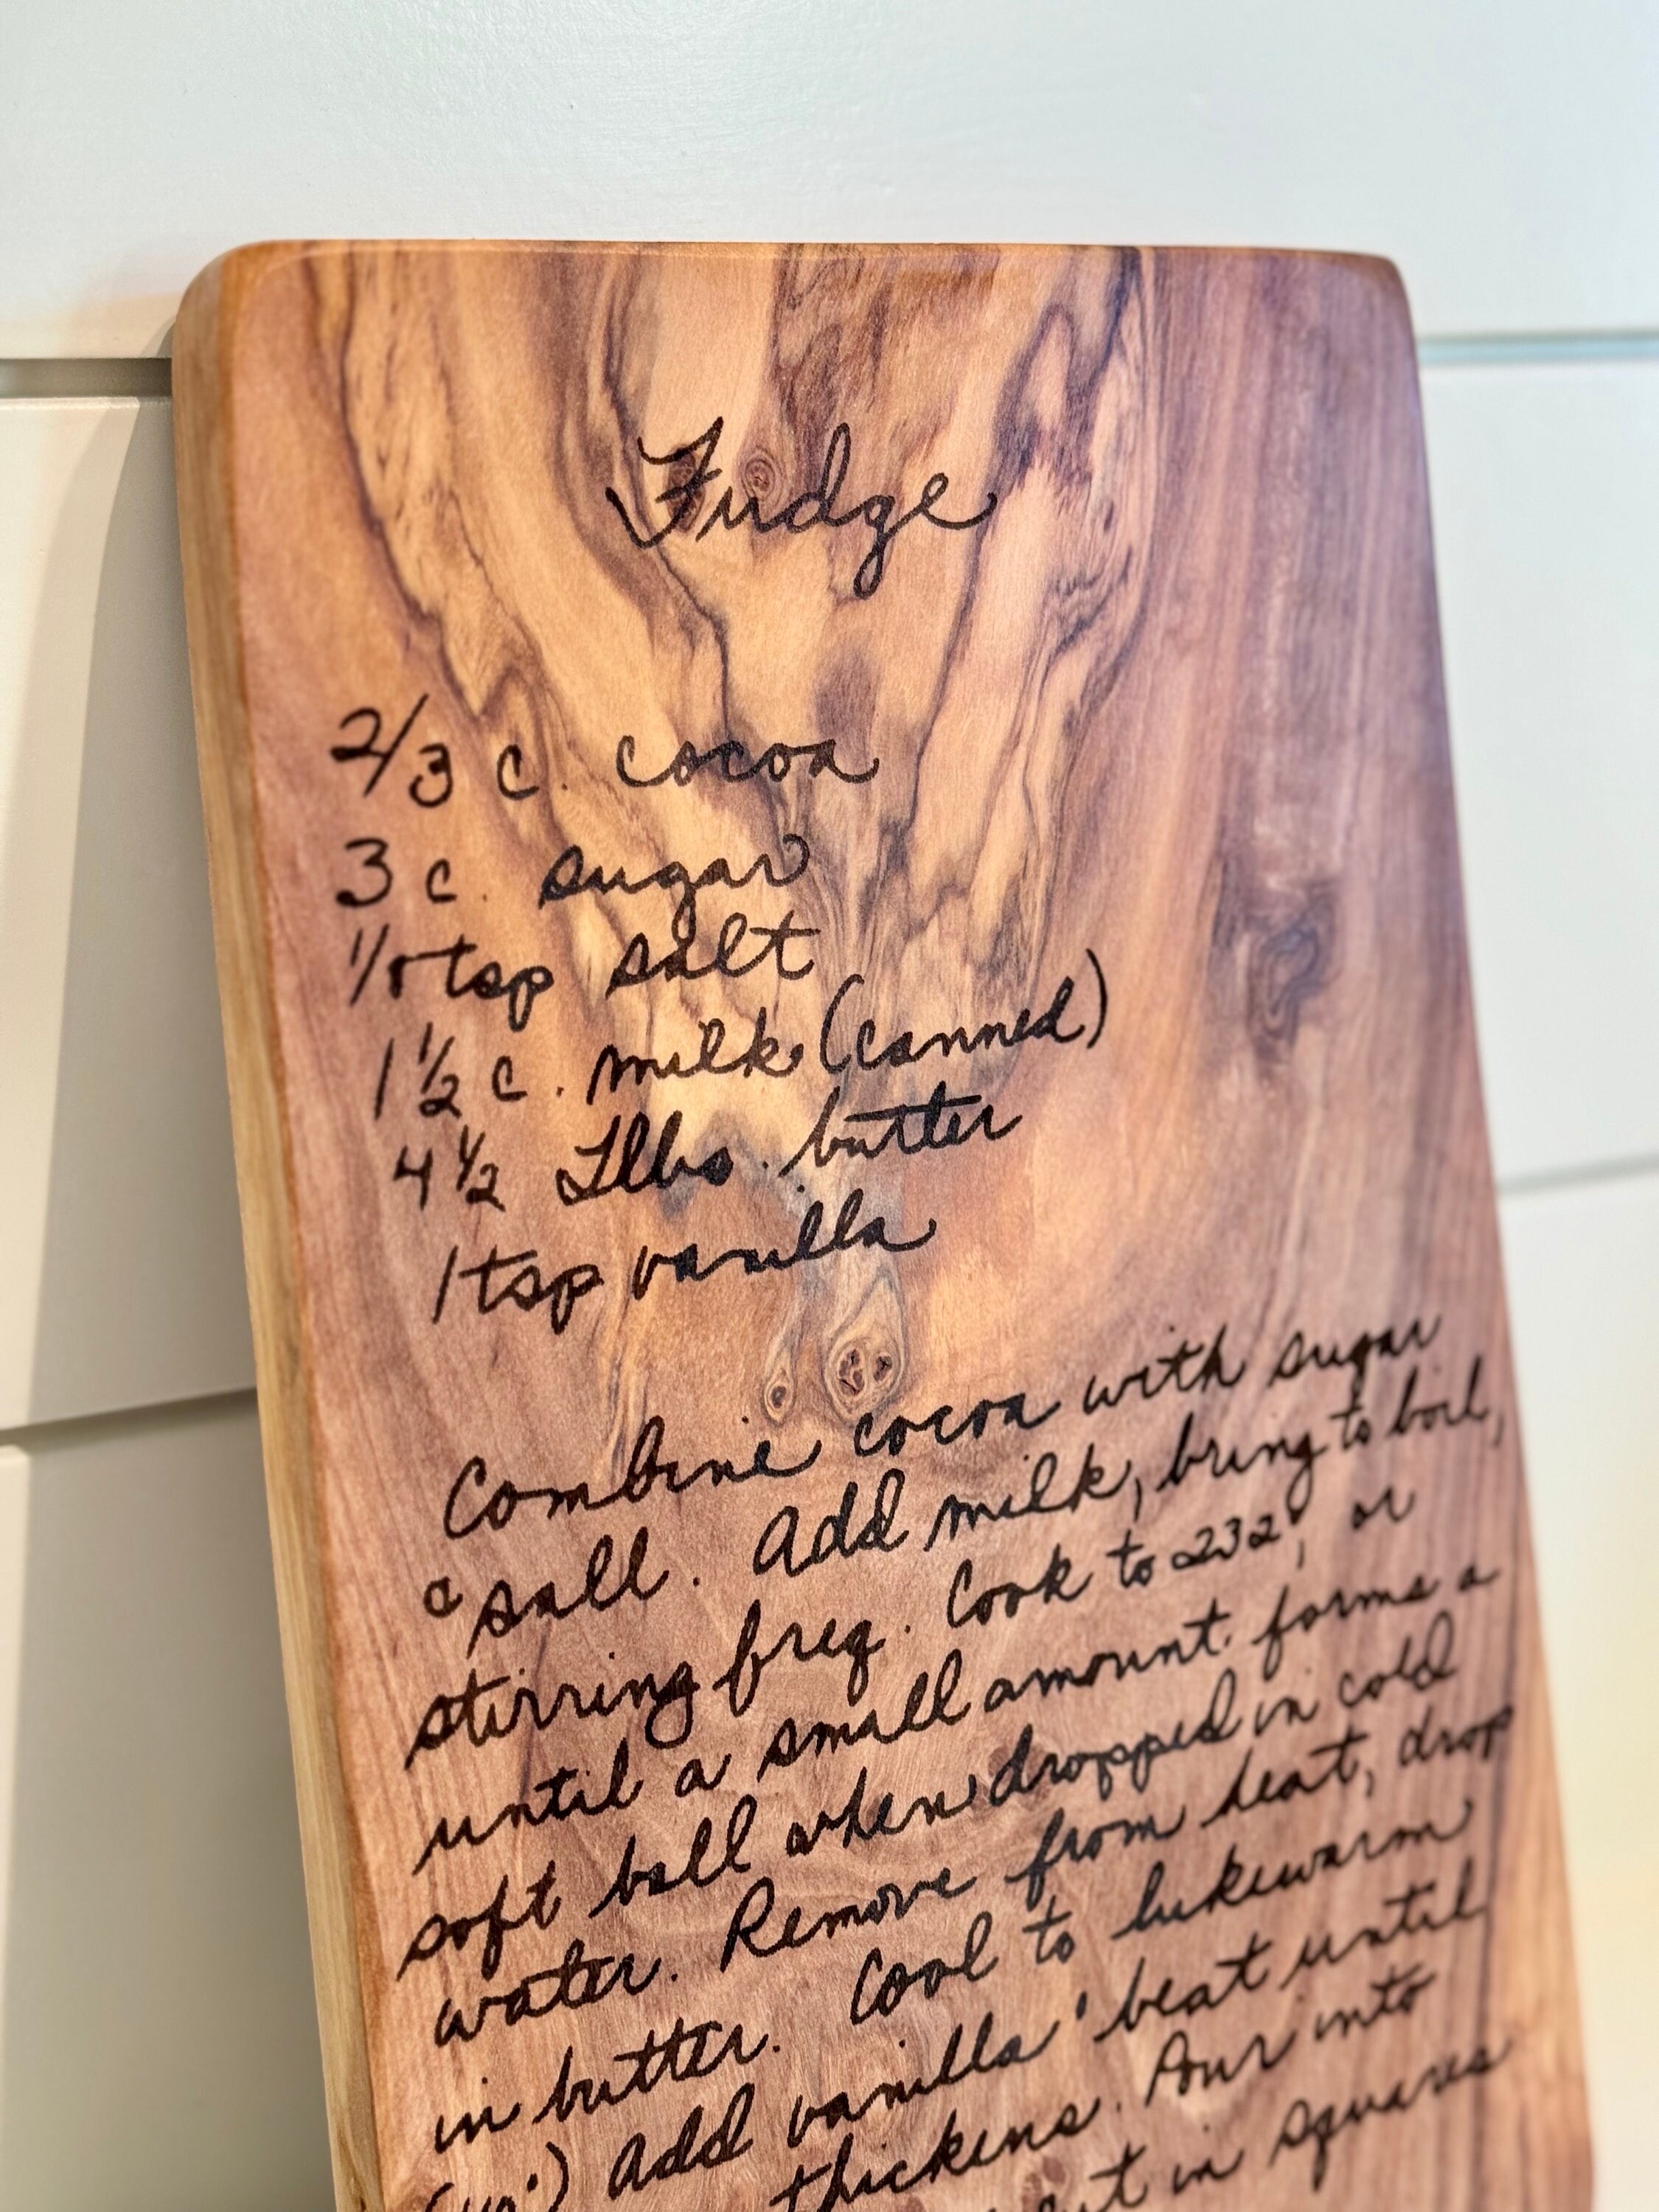 Fudge
2/3 c. cocoa
3 c. sugar
1/8 tsp salt
1 1/2 c. milk (canned)
4 1/2 Tlbs. butter
1 tsp vanilla
Combine cocoa with sugar
& salt. Add milk, bring to boil,
stirring freq. Cook to 232°, or
until a small amount forms a
soft ball when dropped in cold
water. Remove from heat, drop
in butter. Cool to lukewarm
Add vanilla beat until
thickens. Pour into
in squares